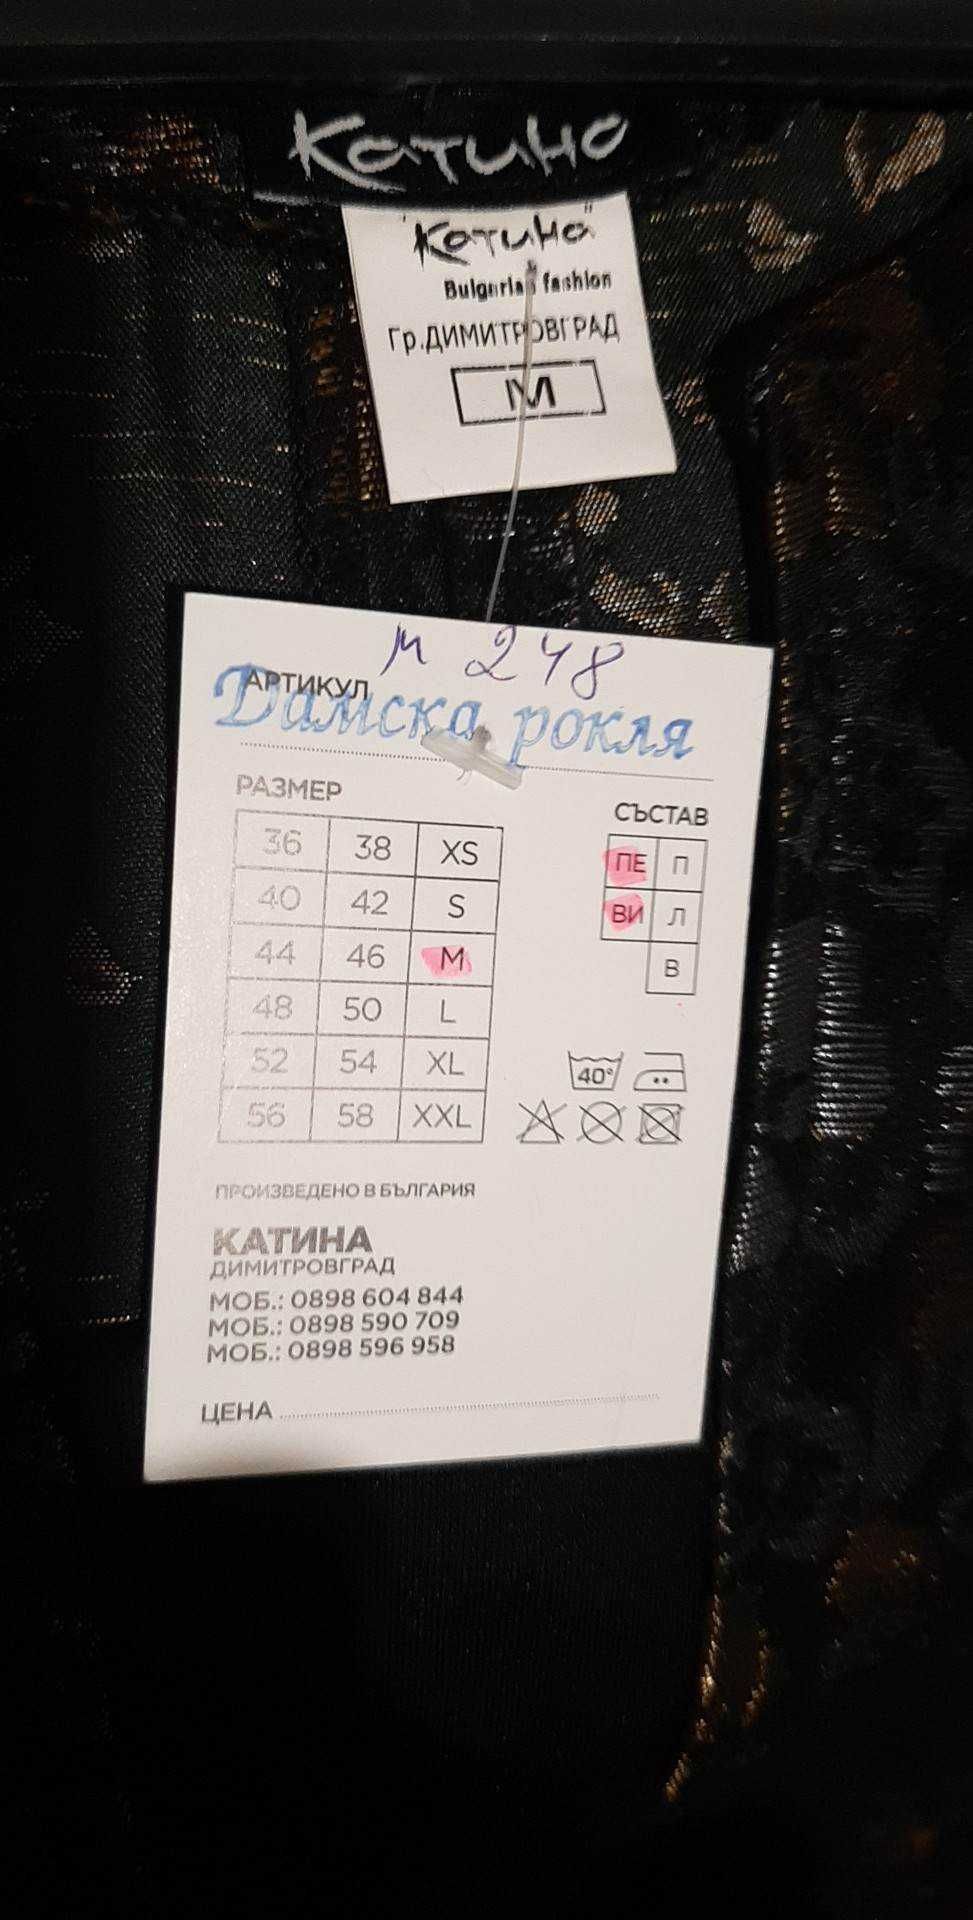 Катина
"Катина"
Bulgarian fashion
Гр.ДИМИТРОВГРАД
M
м 248
АРТИКУЛ
Дамска рокля
РАЗМЕР
36 38 XS
40 42 S
44 46 M
48 50 L
52 54 XL
56 58 XXL
СЪСТАВ
ПЕ П
ВИ Л
В
40°
ПРОИЗВЕДЕНО В БЪЛГАРИЯ
КАТИНА
ДИМИТРОВГРАД
МОБ.: 0898 604 844
МОБ.: 0898 590 709
МОБ.: 0898 596 958
ЦЕНА